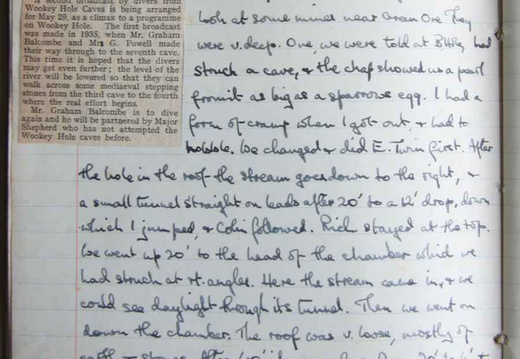 A second broadcast by divers from
Wookey Hole Caves is being arranged
for May 29, as a climax to a programme
on Wookey Hole. The first broadcast
was made in 1935, when Mr. Graham
Balcombe and Mrs G. Powell made
their way through to the seventh cave.
This time it is hoped that the divers
may get even further; the level of the
river will be lowered so that they can
walk across some mediaeval stepping
stones from the third cave to the fourth
where the real effort begins.
Mr. Graham Balcombe is to dive
again and he will be partnered by Major
Shepherd who has not attempted the
Wookey Hole caves before.
look at some mines near Green Ore. They
were v. deep. One, we were told at had
struck a cave, & the chap showed us a pearl
from it as big as a sparrows egg. I had a
form of cramp when I got out, & had to
hobble. We changed & did E. Twin first. After
the hole in the roof the stream goes down to the right, &
a small tunnel straight on leads after 20' to a 12' drop, down
which I jumped, & Colin followed. Rich stayed at the top.
We went up 20' to the head of the chamber which we
had struck at rt. angles. Here the stream came in, & we
could see daylight through its tunnel. Then we went on
down the chamber. The roof was v. loose, mostly of
earth & stones. After